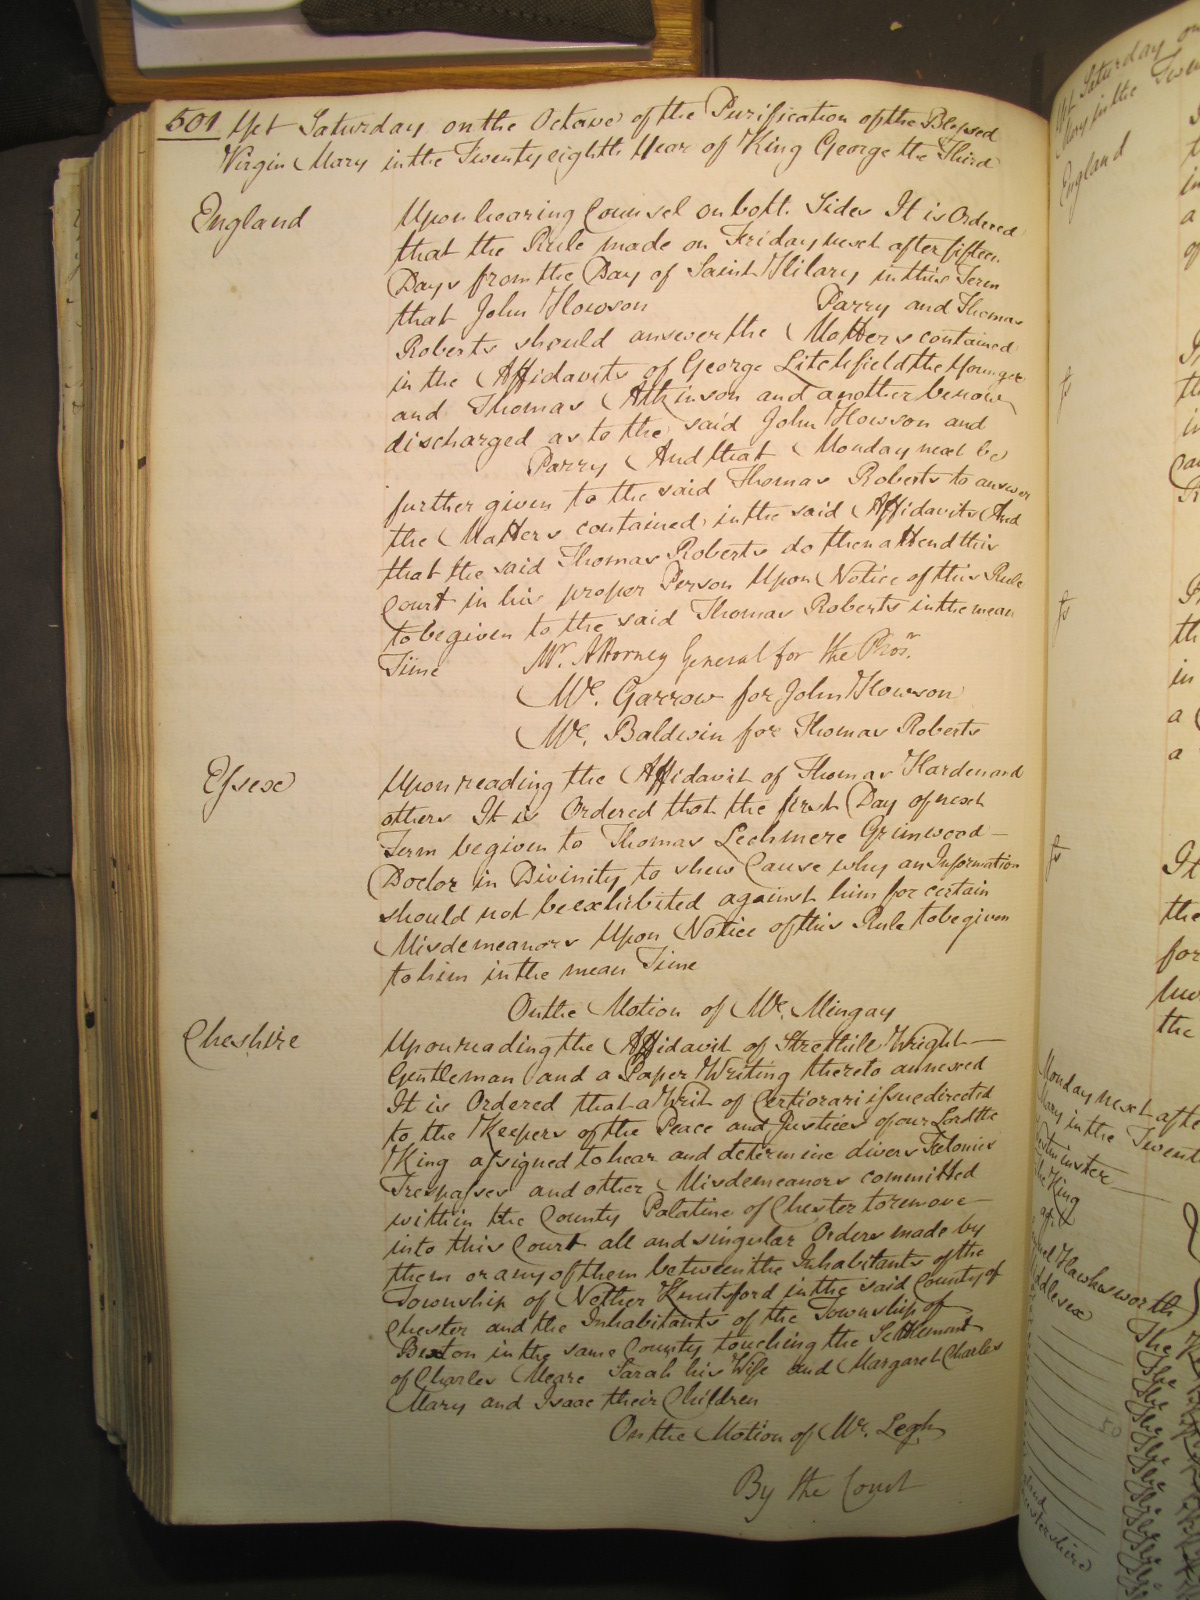 501 Yet Saturday on the Octave of the Purification of the Blessed
Virgin Mary in the Twenty eighth Year of King George the Third
England
Upon hearing Counsel on both Sides It is Ordered
that the Rule made on Friday next after fifteen
Days from the Day of Saint Hilary in this Term
that John Howson Parry and Thomas
Roberts should answer the Matters contained
in the Affidavits of George Litchfield the Younger
and Thomas Atkinson and another be now
discharged as to the said John Howson and
Parry And that Monday next be
further given to the said Thomas Roberts to answer
the Matters contained in the said Affidavits And
that the said Thomas Roberts do then attend this
Court in his proper Person Upon Notice of this Rule
to be given to the said Thomas Roberts in the mean
Time Mr. Attorney General for the Pros.r
Mr. Garrow for John Howson
Mr. Baldwin for Thomas Roberts
Essex
Upon reading the Affidavit of Thomas Harden and
others It is Ordered that the first Day of next
Term be given to Thomas Lechmere Grimwood
Doctor in Divinity to shew Cause why an Information
should not be exhibited against him for certain
Misdemeanors Upon Notice of this Rule to be given
to him in the mean Time
On the Motion of Mr. Mingay
Cheshire
Upon reading the Affidavit of Strethill Wright
Gentleman and a Paper Writing thereto annexed
It is Ordered that a Writ of Certiorari issue directed
to the Keepers of the Peace and Justices of our Lord the
King assigned to hear and determine divers Felonies
Trespasses and other Misdemeanors committed
within the County Palatine of Chester to remove
into this Court all and singular Orders made by
them or any of them between the Inhabitants of the
Township of Nether Knutsford in the said County of
Chester and the Inhabitants of the Township of
Bexton in the same County touching the Settlement
of Charles Meare Sarah his Wife and Margaret Charles
Mary and Isaac their Children
On the Motion of Mr. Legh
By the Court
England
Monday next afte
Mary in the Twent
the King
Hawkesworth